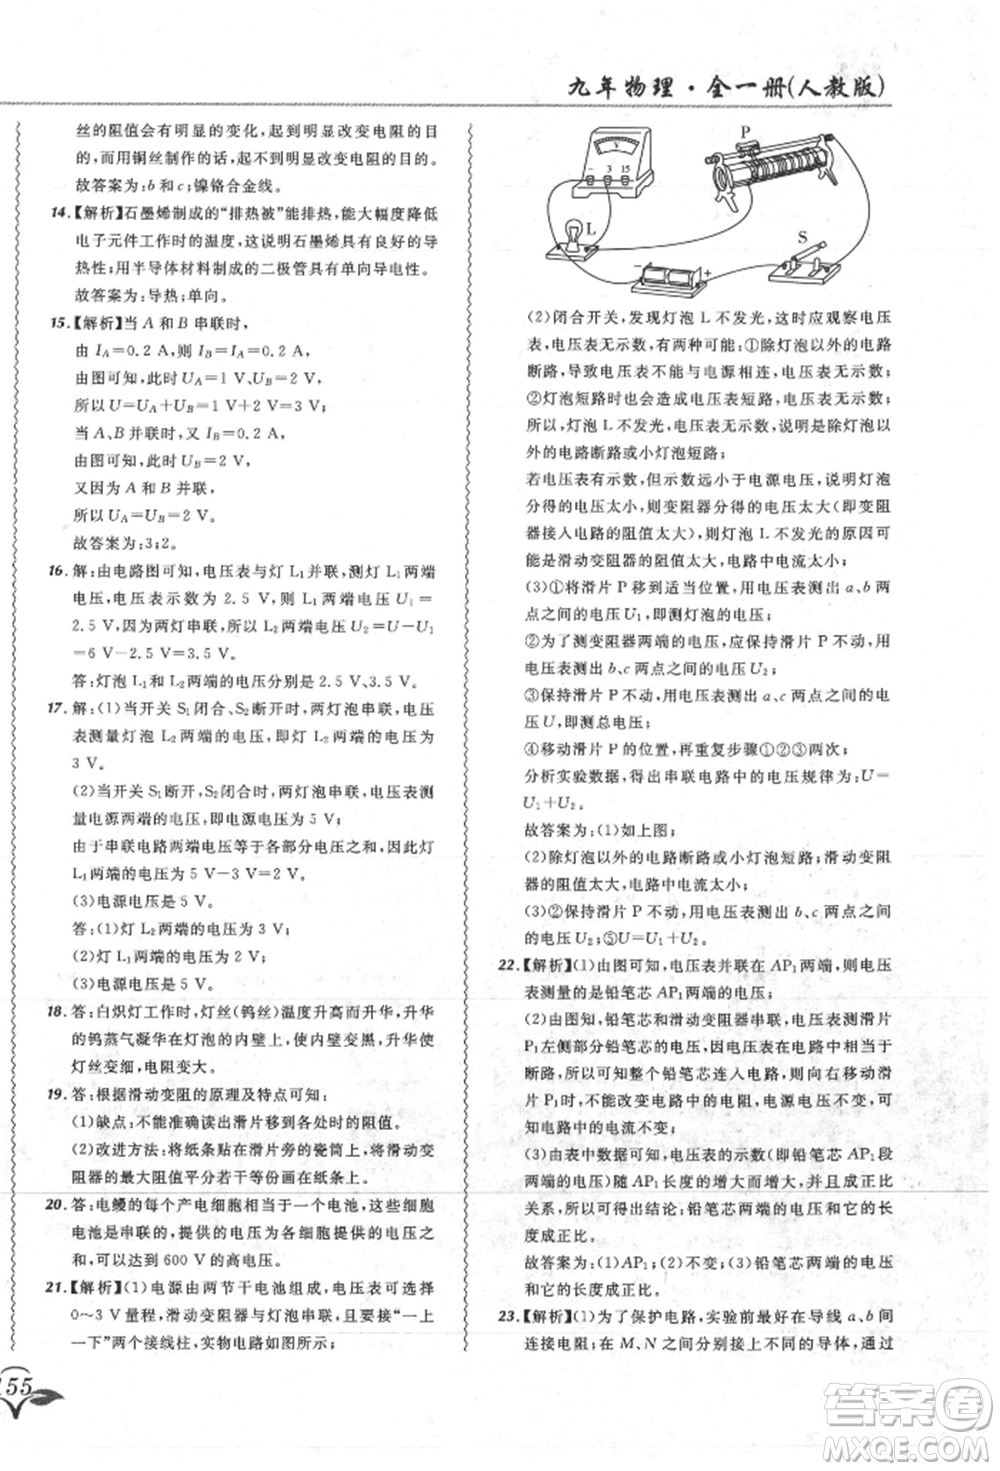 九年物理·全一册(人教版)
丝的阻值会有明显的变化,起到明显改变电阻的目
的,而用铜丝制作的话,起不到明显改变电阻的目的。
故答案为:b 和 c;镍铬合金线。
14.【解析】石墨烯制成的“排热被”能排热,能大幅度降低
电子元件工作时的温度,这说明石墨烯具有良好的导
热性;用半导体材料制成的二极管具有单向导电性。
故答案为:导热;单向。
15.【解析】当 A 和 B 串联时,
由 I_A=0.2 A,则 I_B=I_A=0.2 A,
由图可知,此时 U_A=U_B=2 V,
所以 U=U_A+U_B=2 V+1 V=3 V;
当 A、B 并联时,又 I_B=0.2 A,
由图可知,此时 U_B=2 V,
又因为 A 和 B 并联,
所以 U_A=U_B=U=2 V。
故答案为:3;2。
16. 解:由电路图可知,电压表与灯 L₁ 并联,测灯 L₁ 两端
电压,电压表示数为 2.5 V,则 L₁ 两端电压 U₁=
2.5 V;因为两灯串联,所以 L₂ 两端电压 U₂=U-U₁
=6 V-2.5 V=3.5 V。
答:灯泡 L₁ 和 L₂ 两端的电压分别是 2.5 V、3.5 V。
17. 解:(1)当开关 S₁ 闭合、S₂ 断开时,两灯泡串联,电压
表测量灯泡 L₂ 两端的电压,即灯 L₂ 两端的电压为
3 V。
(2)当开关 S₁ 断开,S₂ 闭合时,两灯泡串联,电压表测
量电源两端的电压,即电源电压为 5 V;
由于串联电路两端电压等于各部分电压之和,灯
L₁ 两端的电压为 5 V-3 V=2 V。
(3)电源电压是 5 V。
答:(1)灯 L₂ 两端的电压为 3 V。
(2)灯 L₁ 两端的电压为 2 V。
(3)电源电压为 5 V。
18. 答:白炽灯工作时,灯丝(钨丝)温度升高而升华,升华
的钨蒸气凝华在灯泡的内壁上,使其内壁变黑,升华使
灯丝变细,电阻变大。
19. 答:根据滑动变阻的原理及特点可知:
(1)缺点:不能准确读出滑片移到各处时的阻值。
(2)改进方法:将纸条贴在滑片旁的瓷筒上,将滑动变
阻器的最大阻值平分若干等份并标在纸条上。
20. 答:电鳗的每个产电细胞相当于一个电池,这些细胞
电池是串联的,提供的电压为各细胞提供的电压之
和,可以达到 600 V 的高电压。
21.【解析】(1)电源由两节干电池组成,电压表可选择
0~3 V 量程,滑动变阻器与灯泡串联,且要接“一上
一下”两个接线柱,实物电路如图所示;
155
V
- 3 15
P
L
S
- +
(2)闭合开关,发现灯泡 L 不发光,这时应观察电压
表,若电压表无示数,有两种可能:①除灯泡以外的电路
断路,导致电压表不能与电源相连,电压表无示数;
②灯泡短路时也会造成电压表短路,电压表无示数;
所以,灯泡 L 不发光,电压表无示数,可能是除灯泡以
外的电路断路或小灯泡短路;
若电压表有示数,但示数远小于电源电压,说明灯泡
分得的电压太小,则变阻器分得的电压太大(即变阻
器接入电路的阻值太大),所以灯泡 L 不发光的原因可
能是滑动变阻器的阻值太大,电路中电流太小;
(3)①将滑片 P 移到适当位置,用电压表测出 a、b 两
点之间的电压 U₁,即测灯泡的电压;
②为了测变阻器两端的电压,应保持滑片 P 不动,用
电压表测出 b、c 两点之间的电压 U₂;
③保持滑片 P 不动,用电压表测出 a、c 两点之间的
电压 U,即测总电压;
④移动滑片 P 的位置,再重复步骤①②③两次;
分析实验数据,得出串联电路中的电压规律为:U=
U₁+U₂。
故答案为:(1)如上图;
(2)除灯泡以外的电路断路或小灯泡短路;滑动变阻
器的阻值太大,电路中电流太小;
(3)②保持滑片 P 不动,用电压表测出 b、c 两点之间
的电压 U₂;⑤U=U₁+U₂。
22.【解析】(1)由图可知,电压表并联在 AP₁ 两端,则电压
表测量的是铅笔芯 AP₁ 两端的电压;
(2)由图知,铅笔芯和滑动变阻器串联,当向右移动滑片
P₁ 左侧部分铅笔芯的电压表在电路中相当于
断路,所以,移动 P₁ 时,铅笔芯连入电路的电阻
不变,不能改变电路中的电阻,电源电压不变,所以电
路中的电流不变;
(3)由表中数据可知,随着铅笔芯 AP₁ 段长度的增大,AP₁ 段
两端的电压随 AP₁ 长度的增大而变大,且对应的倍数
相同,所以,可得出结论:铅笔芯两端的电压和它的长度
成正比。
故答案为:(1)AP₁;(2)不变;(3)铅笔芯两端的电压
和它的长度成正比。
23.【解析】(1)为了保护电路,实验前最好在导线 a、b 间
连接电阻,在 M、N 之间分别接入不同的导体,通过
答案圈
MXQE.COM